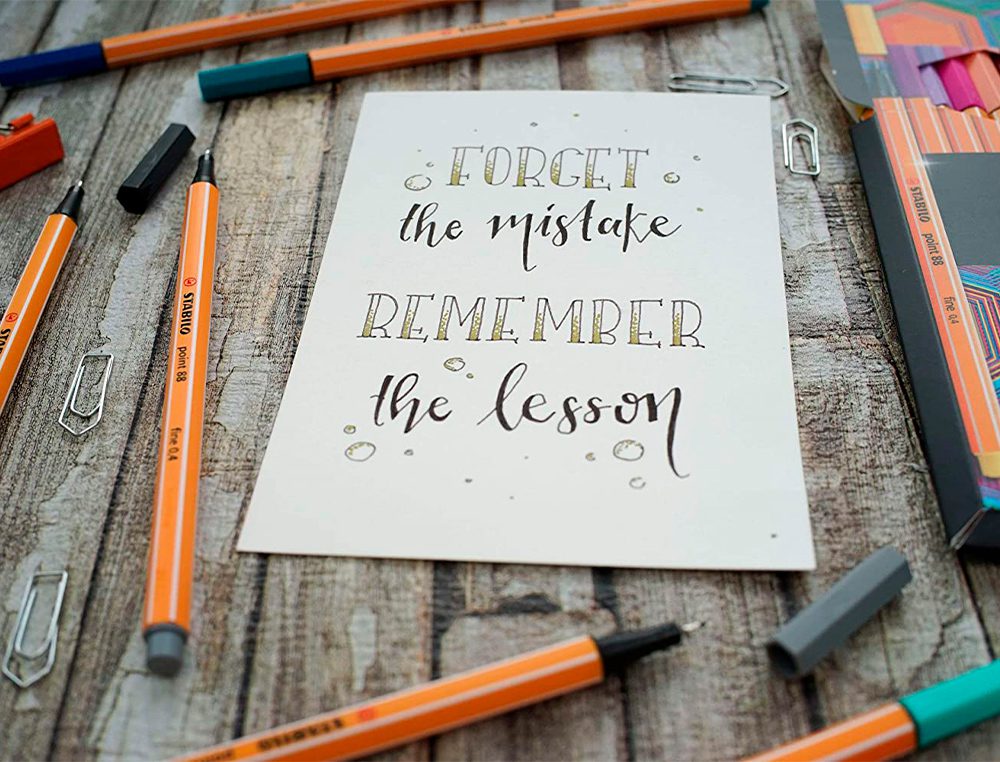 FORGET
the mistake
REMEMBER
the lesson
STABILO point 88 fine 0,4
STABILO point 88 fine 0,4
STABILO